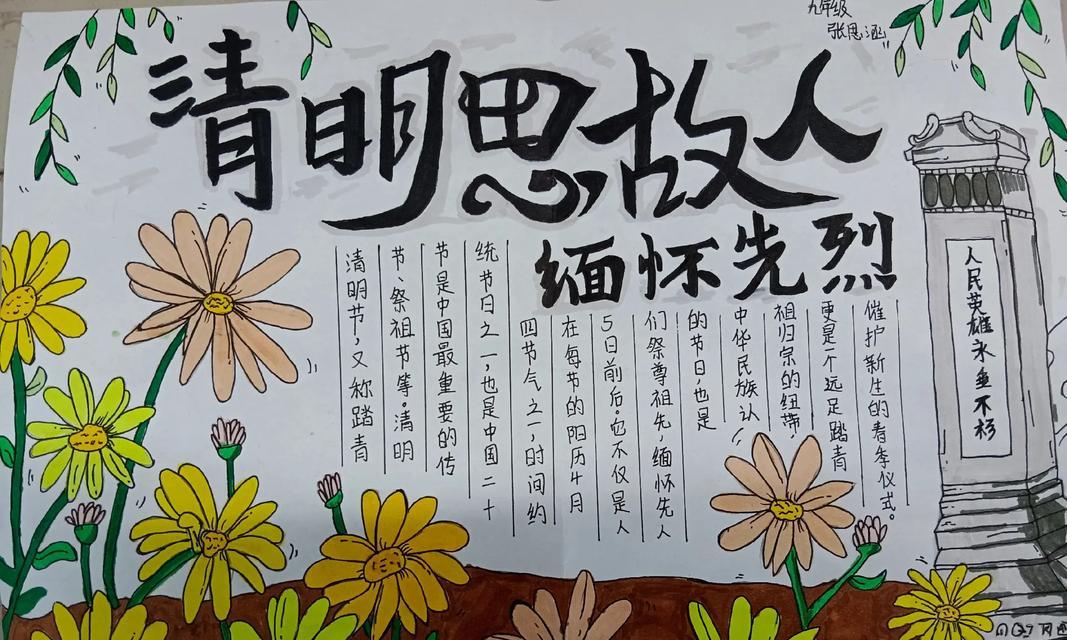 九年级
张思涵
清明思故人
缅怀先烈
清明节,又称踏青
节、祭祖节等。清明
节是中国最重要的传
统节日之一,也是中国二十
四节气之一,时间约
在每节的阳历4月
5日前后。它不仅是人
们祭尊祖先,缅怀先人
的节日,也是
中华民族认
祖归宗的纽带,
更是一个远足踏青
催护新生的春季仪式。
人民英雄永垂不杉